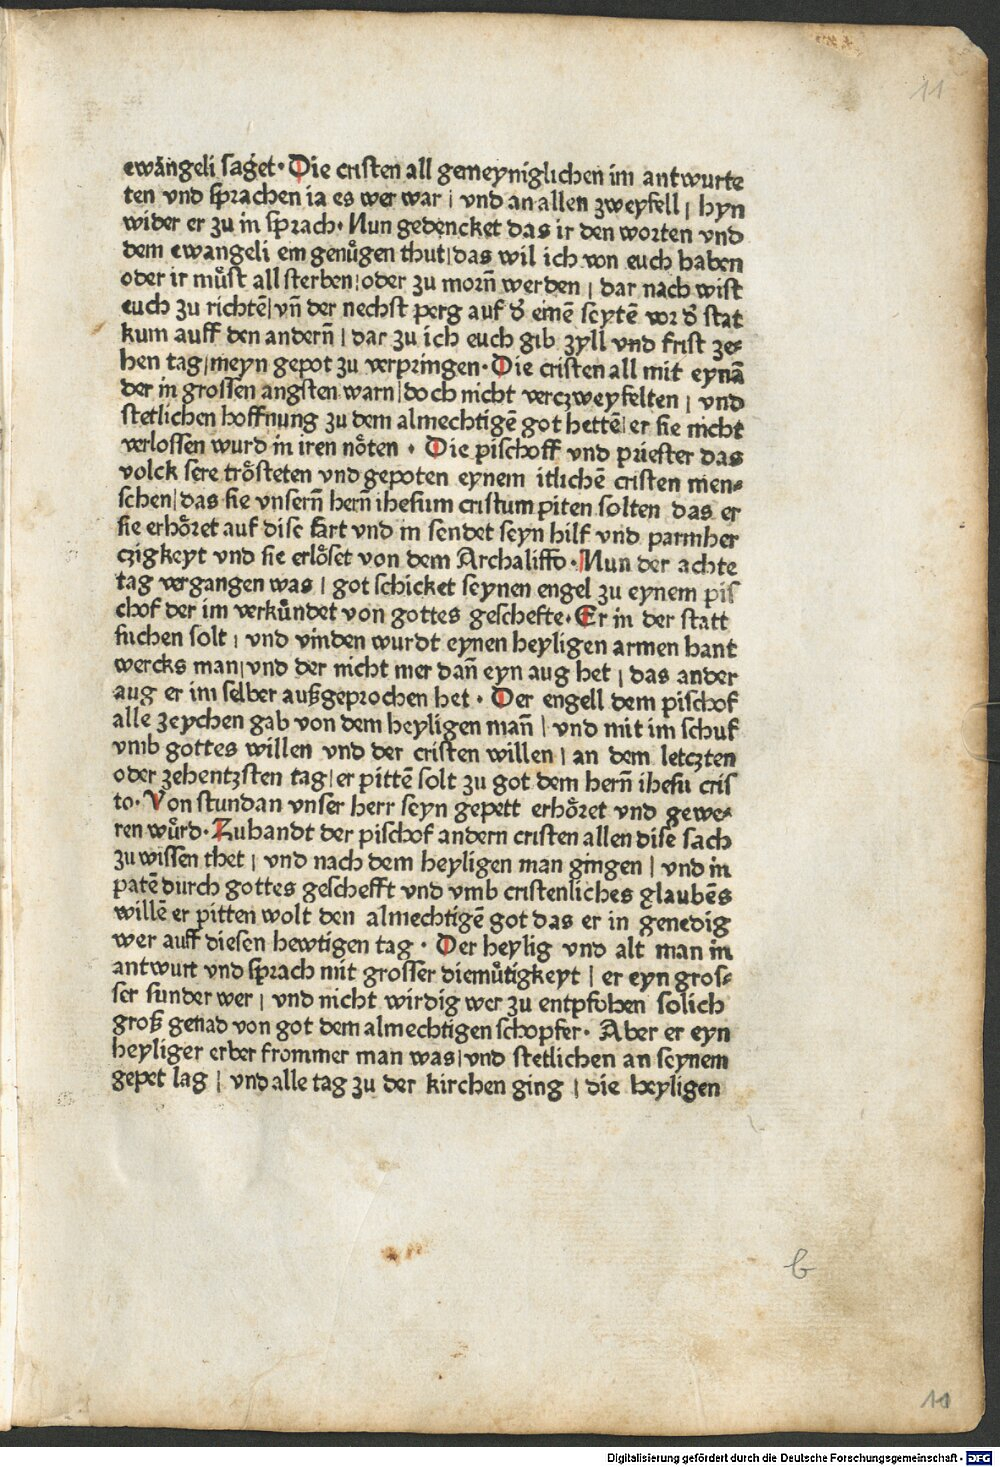 11
ewangeli saget· Die cristen all gemeyniglichen im antwurte
ten vnd sprachen ia es wer war / vnd an allen zweyfell / hyn
wider er zu in sprach· Nun gedencket das ir den worten vnd
dem ewangeli ein genuͤgen thut / das wil ich von euch haben
oder ir muͤst all sterben / oder zu morn̄ werden / dar nach wist
euch zu richtē / vn̄ der nechst perg auf d͛ einē seytē vor d͛ stat
kum auff den andern̄ / dar zu ich euch gib zyll vnd frist ze⸗
hen tag / meyn gepot zu verpringen· Die cristen all mit eynā
der in grossen angsten warn / doch nicht verczweyfelten / vnd
stetlichen hoffnung zu dem almechtigē got hettē / er sie nicht
verlossen wurd in iren noͤten · Die pischoff vnd priester das
volck sere troͤsteten vnd gepoten eynem itlichē cristen men⸗
schen / das sie vnsern̄ hern̄ ihesum cristum piten solten das er
sie erhoͤret auf dise fart vnd in sendet seyn hilf vnd parmher
czigkeyt vnd sie erloͤset von dem Archaliffo · Nun der achte
tag vergangen was / got schicket seynen engel zu eynem pis
chof der im verkuͤndet von gottes geschefte· Er in der statt
suchen solt / vnd vinden wurdt eynen heyligen armen hant
wercks man / vnd der nicht mer dan̄ eyn aug het / das ander
aug er im selber außgeprochen het · Der engell dem pischof
alle zeychen gab von dem heyligen man̄ / vnd mit im schuf
vmb gottes willen vnd der cristen willen / an dem letczten
oder zehentzsten tag / er pittē solt zu got dem hern̄ ihesu cris
to· Von stundan vnser herr seyn gepett erhoͤret vnd gewe⸗
ren wuͤrd· Zuhandt der pischof andern cristen allen dise sach
zu wissen thet / vnd nach dem heyligen man gingen / vnd in
patē durch gottes geschefft vnd vmb cristenliches glaubēs
willē er pitten wolt den almechtigē got das er in genedig
wer auff diesen hewtigen tag · Der heylig vnd alt man in
antwurt vnd sprach mit grosser diemuͤtigkeyt / er eyn gros⸗
ser sunder wer / vnd nicht wirdig wer zu entpfohen solich
groß genad von got dem almechtigen schopfer· Aber er eyn
heyliger erber frommer man was / vnd stetlichen an seynem
gepet lag / vnd alle tag zu der kirchen ging / die heyligen
b
10
Digitalisierung gefördert durch die Deutsche Forschungsgemeinschaft - DFG